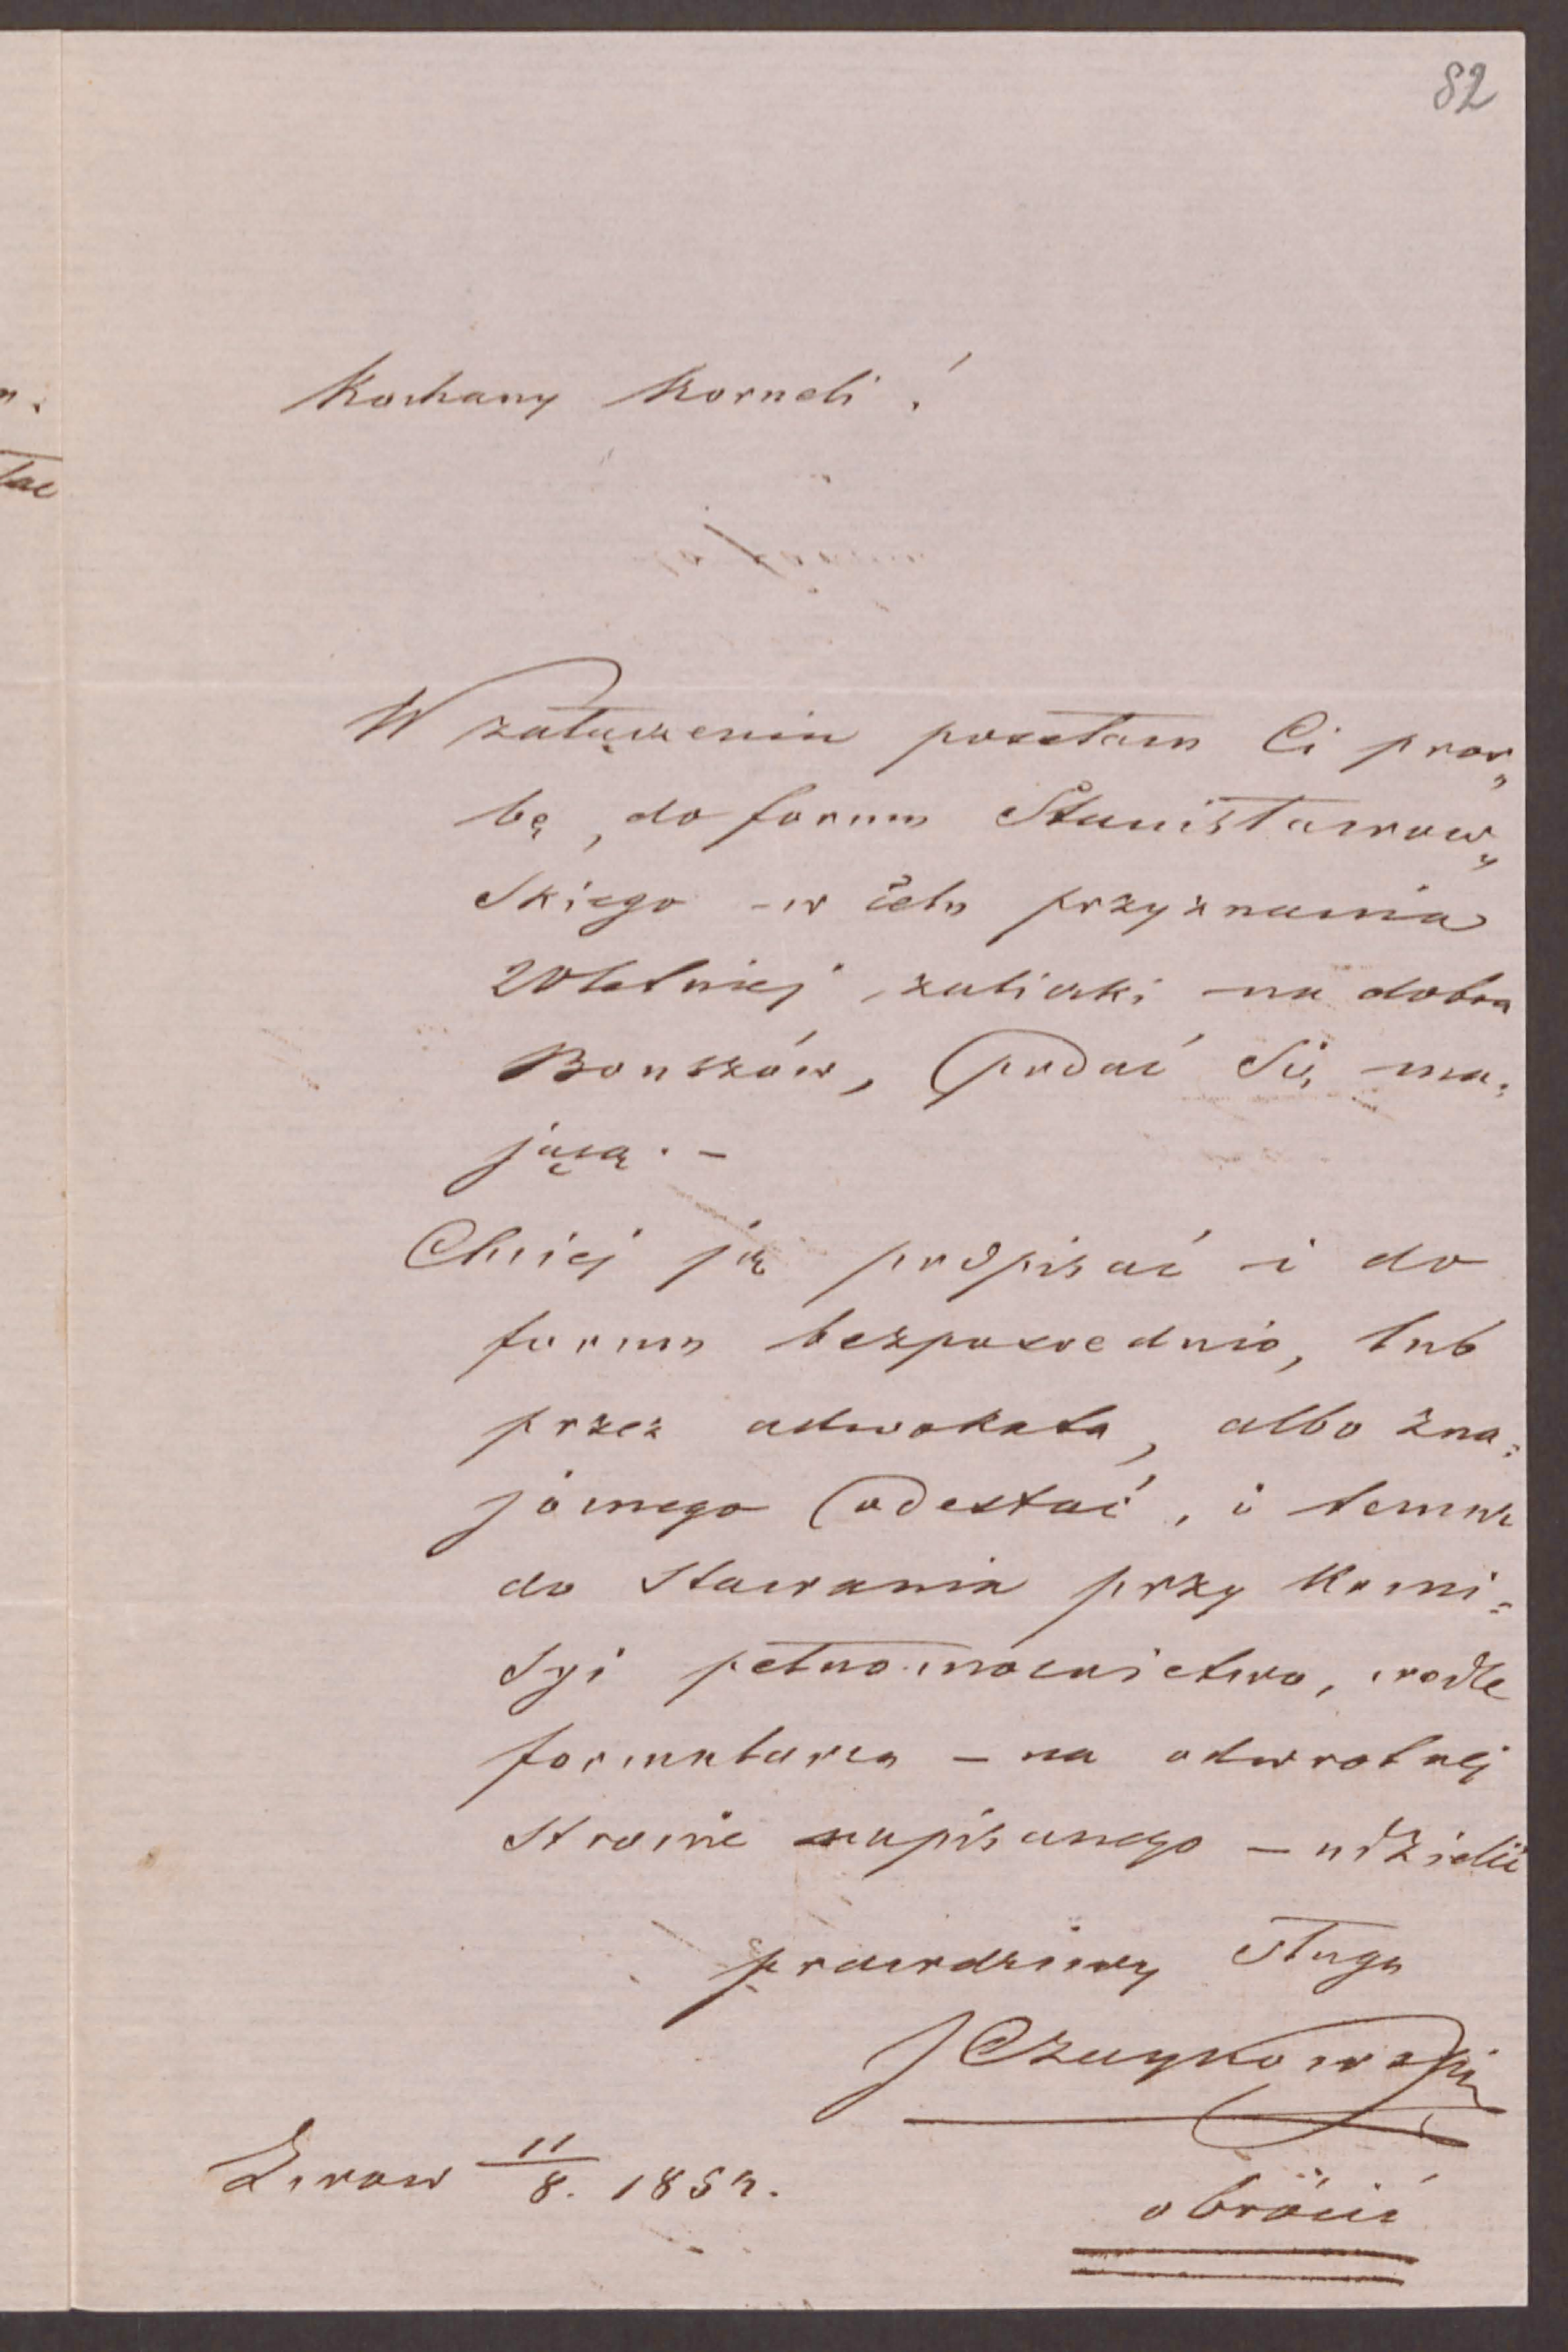 82
Kochany Korneli!
W załączeniu posełam Ci proś„
bę, do forum Stanisławow„
skiego – w celu przyznania
20letniej zaliczki na dobra
Bouszów, podać się ma„
jącą. –
Chciej ją podpisać i do
forum bezpośrednio, lub
przez adwokata, albo zna„
jómego odesłać, i temuż
do stawania przy komi„
syi pełnomocnictwo, wedle
formularza – na odwrotnej
stronie napisanego – udzielić
prawdziwy sługa
J Czaykowski
Lwow 11/8. 1857.
obrócić